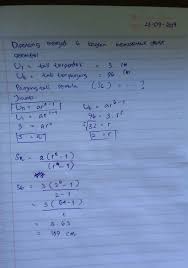 Dipotong menjadi 6 bagian membentuk deret
geometri
U₁ = tali terpendek = 3 cm
U₆ = tali terpanjang = 96 cm
Panjang tali semula (S₆) = ... ?
Jawab
Uₙ = arⁿ⁻¹ U₆ = ar⁶⁻¹
U₁ = ar¹⁻¹ 96 = 3 . r⁵
3 = ar⁰ ⁵√32 = r
3 = a 2 = r
Sₙ = a (rⁿ - 1)
r - 1
S₆ = 3 (2⁶ - 1)
2 - 1
= 3 (64 - 1)
1
= 3 . 63
= 189 cm